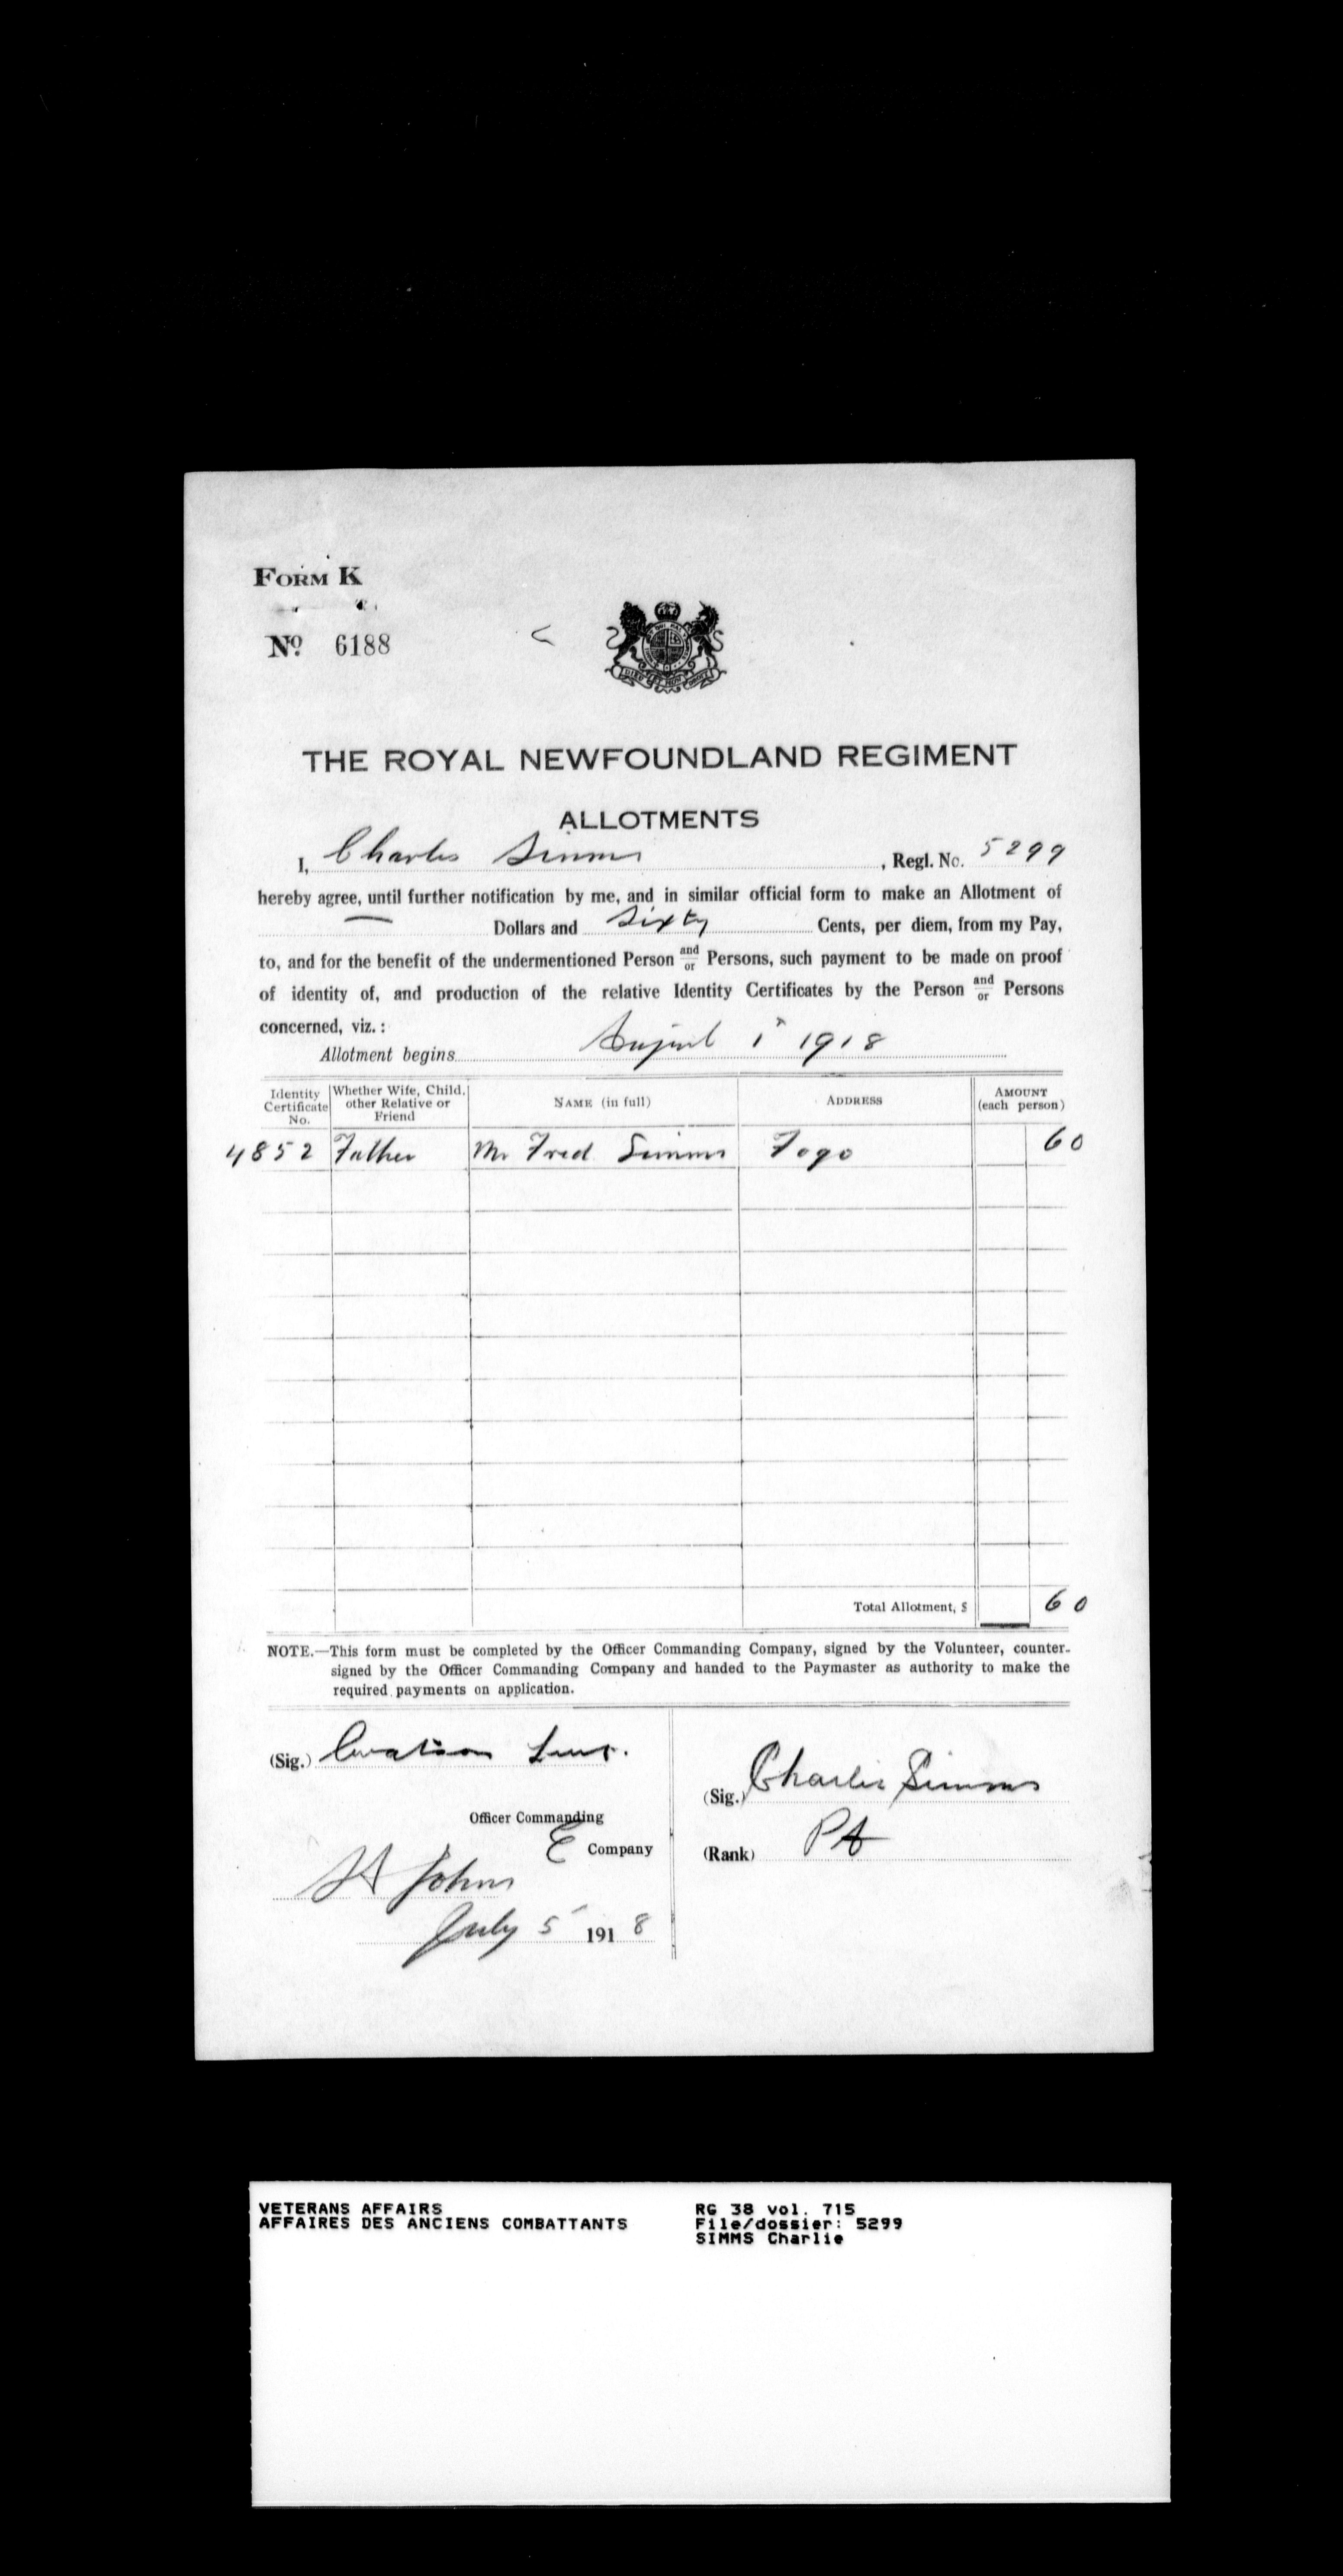 FORM K
No. 6188
THE ROYAL NEWFOUNDLAND REGIMENT
ALLOTMENTS
I, Charles Simms, Regl. No. 5299
hereby agree, until further notification by me, and in similar official form to make an Allotment of
— Dollars and Sixty Cents, per diem, from my Pay,
to, and for the benefit of the undermentioned Person and/or Persons, such payment to be made on proof
of identity of, and production of the relative Identity Certificates by the Person and/or Persons
concerned, viz.:
Allotment begins August 1st 1918
Identity Certificate No. Whether Wife, Child, other Relative or Friend NAME (in full) ADDRESS AMOUNT (each person)
4852 Father Mr Fred Simms Fogo 60
Total Allotment, $ 60
NOTE.—This form must be completed by the Officer Commanding Company, signed by the Volunteer, counter-
signed by the Officer Commanding Company and handed to the Paymaster as authority to make the
required payments on application.
(Sig.) Lieut.
(Sig.) Charlie Simms
Officer Commanding
E Company
(Rank) Pt
St Johns
July 5 1918
VETERANS AFFAIRS RG 38 vol. 715
AFFAIRES DES ANCIENS COMBATTANTS File/dossier: 5299
SIMMS Charlie